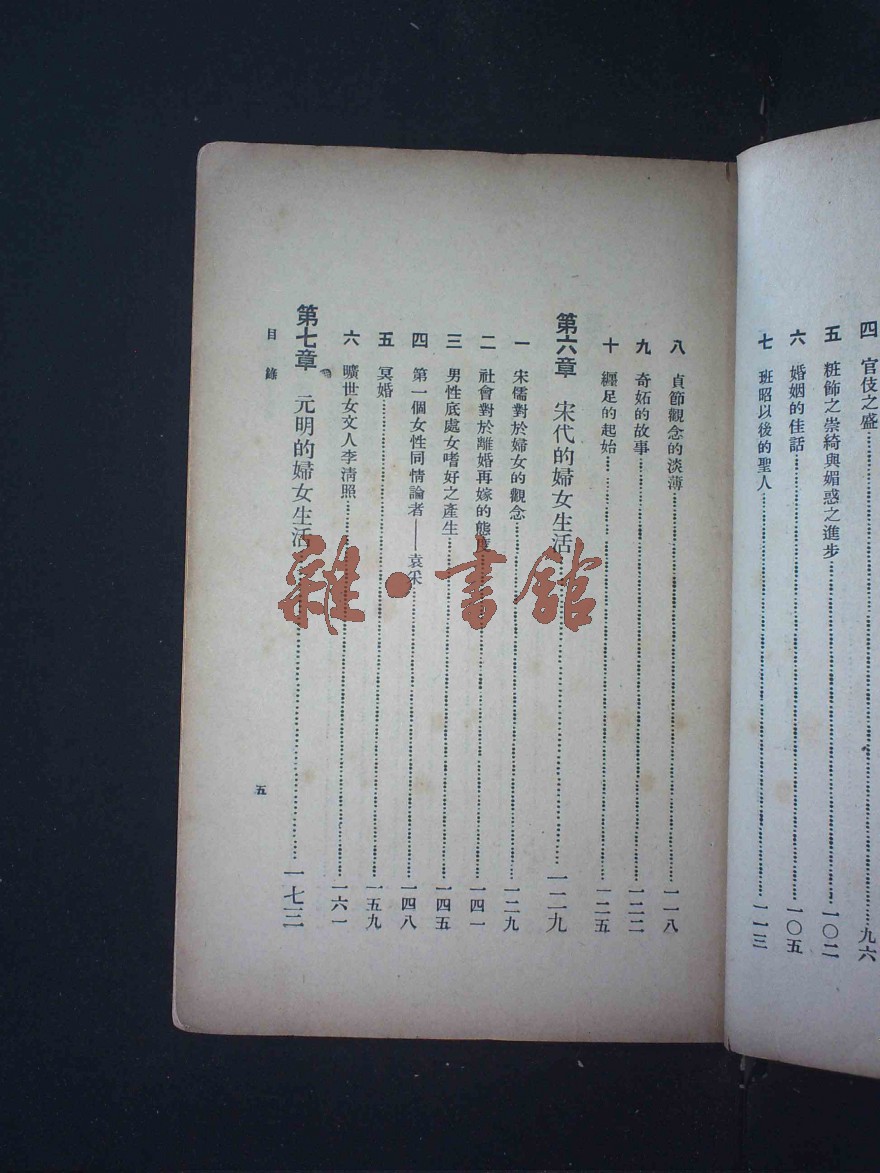 四　官伎之盛……九六
五　粧飾之崇綺與媚惑之進步……一〇二
六　婚姻的佳話……一〇五
七　班昭以後的聖人……一一三
八　貞節觀念的淡薄……一一八
九　奇妬的故事……一二二
十　纏足的起始……一二五
第六章　宋代的婦女生活……一二九
一　宋儒對於婦女的觀念……一二九
二　社會對於離婚再嫁的態度……一四一
三　男性底處女嗜好之產生……一四五
四　第一個女性同情論者——袁采……一四八
五　冥婚……一五九
六　曠世女文人李淸照……一六一
第七章　元明的婦女生活……一七三
目錄
五
雜·書館